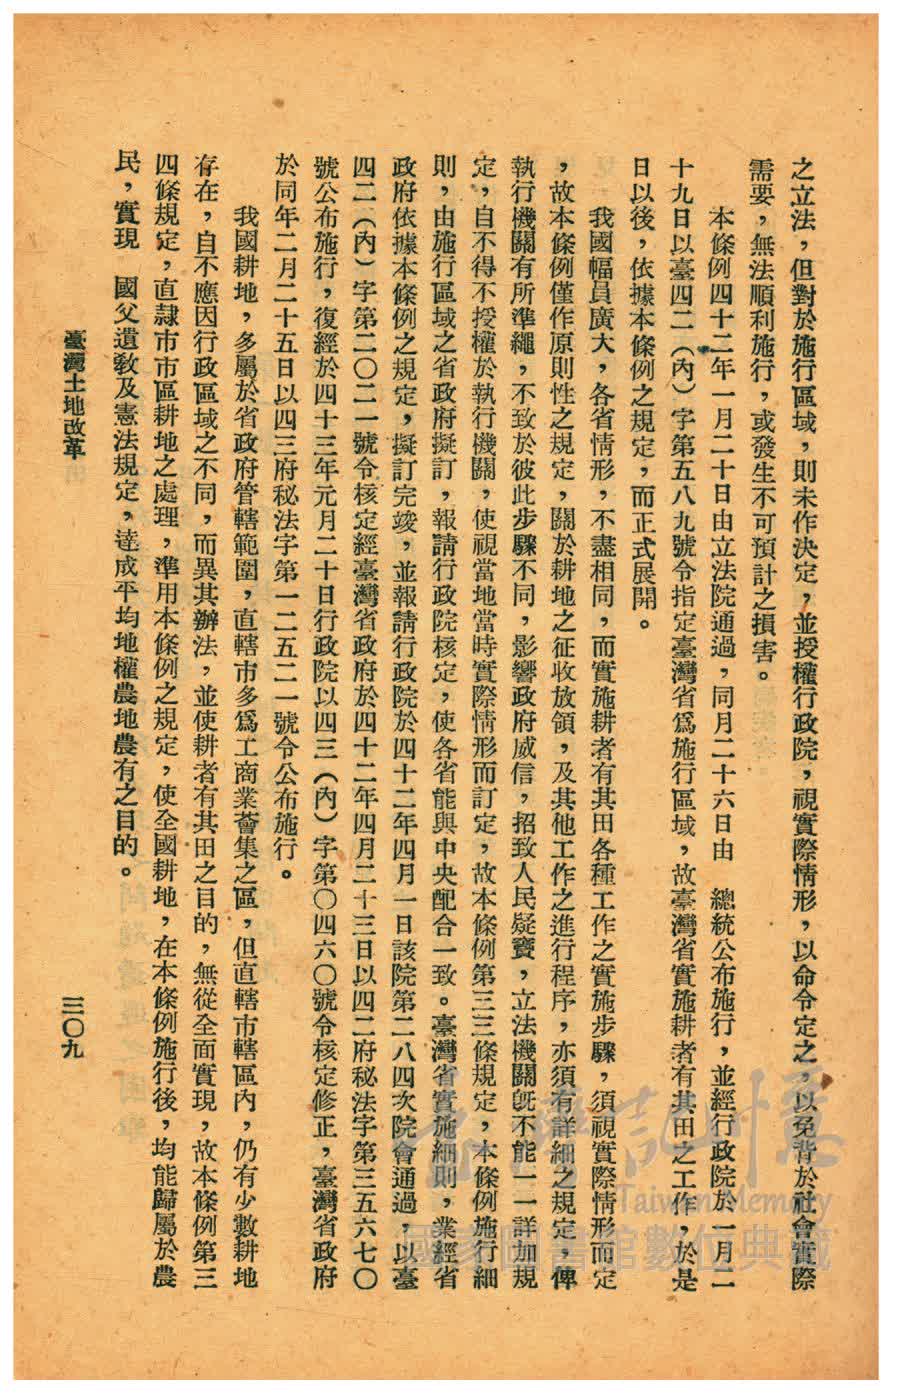 之立法，但對於施行區域，則未作決定，並授權行政院，視實際情形，以命令定之，以免背於社會實際
需要，無法順利施行，或發生不可預計之損害。
本條例四十二年一月二十日由立法院通過，同月二十六日由　總統公布施行，並經行政院於一月二
十九日以臺四二（內）字第五八九號令指定臺灣省爲施行區域，故臺灣省實施耕者有其田之工作，於是
日以後，依據本條例之規定，而正式展開。
我國幅員廣大，各省情形，不盡相同，而實施耕者有其田各種工作之實施步驟，須視實際情形而定
，故本條例僅作原則性之規定，關於耕地之征收放領，及其他工作之進行程序，亦須有詳細之規定，俾
執行機關有所準繩，不致於彼此步驟不同，影響政府威信，招致人民疑竇，立法機關旣不能一一詳加規
定，自不得不授權於執行機關，使視當地當時實際情形而訂定，故本條例第三三條規定，本條例施行細
則，由施行區域之省政府擬訂，報請行政院核定，使各省能與中央配合一致。臺灣省實施細則，業經省
政府依據本條例之規定，擬訂完竣，並報請行政院於四十二年四月一日該院第二八四次院會通過，以臺
四二（內）字第二〇二一號令核定經臺灣省政府於四十二年四月二十三日以四二府秘法字第三五六七〇
號公布施行，復經於四十三年元月二十日行政院以四三（內）字第〇四六〇號令核定修正，臺灣省政府
於同年二月二十五日以四三府秘法字第一二五二一號令公布施行。
我國耕地，多屬於省政府管轄範圍，直轄市多爲工商業薈集之區，但直轄市轄區內，仍有少數耕地
存在，自不應因行政區域之不同，而異其辦法，並使耕者有其田之目的，無從全面實現，故本條例第三
四條規定，直隷市市區耕地之處理，準用本條例之規定，使全國耕地，在本條例施行後，均能歸屬於農
民，實現　國父遺敎及憲法規定，達成平均地權農地農有之目的。
臺灣土地改革
三〇九
臺灣記憶
Taiwan Memory
國家圖書館數位典藏